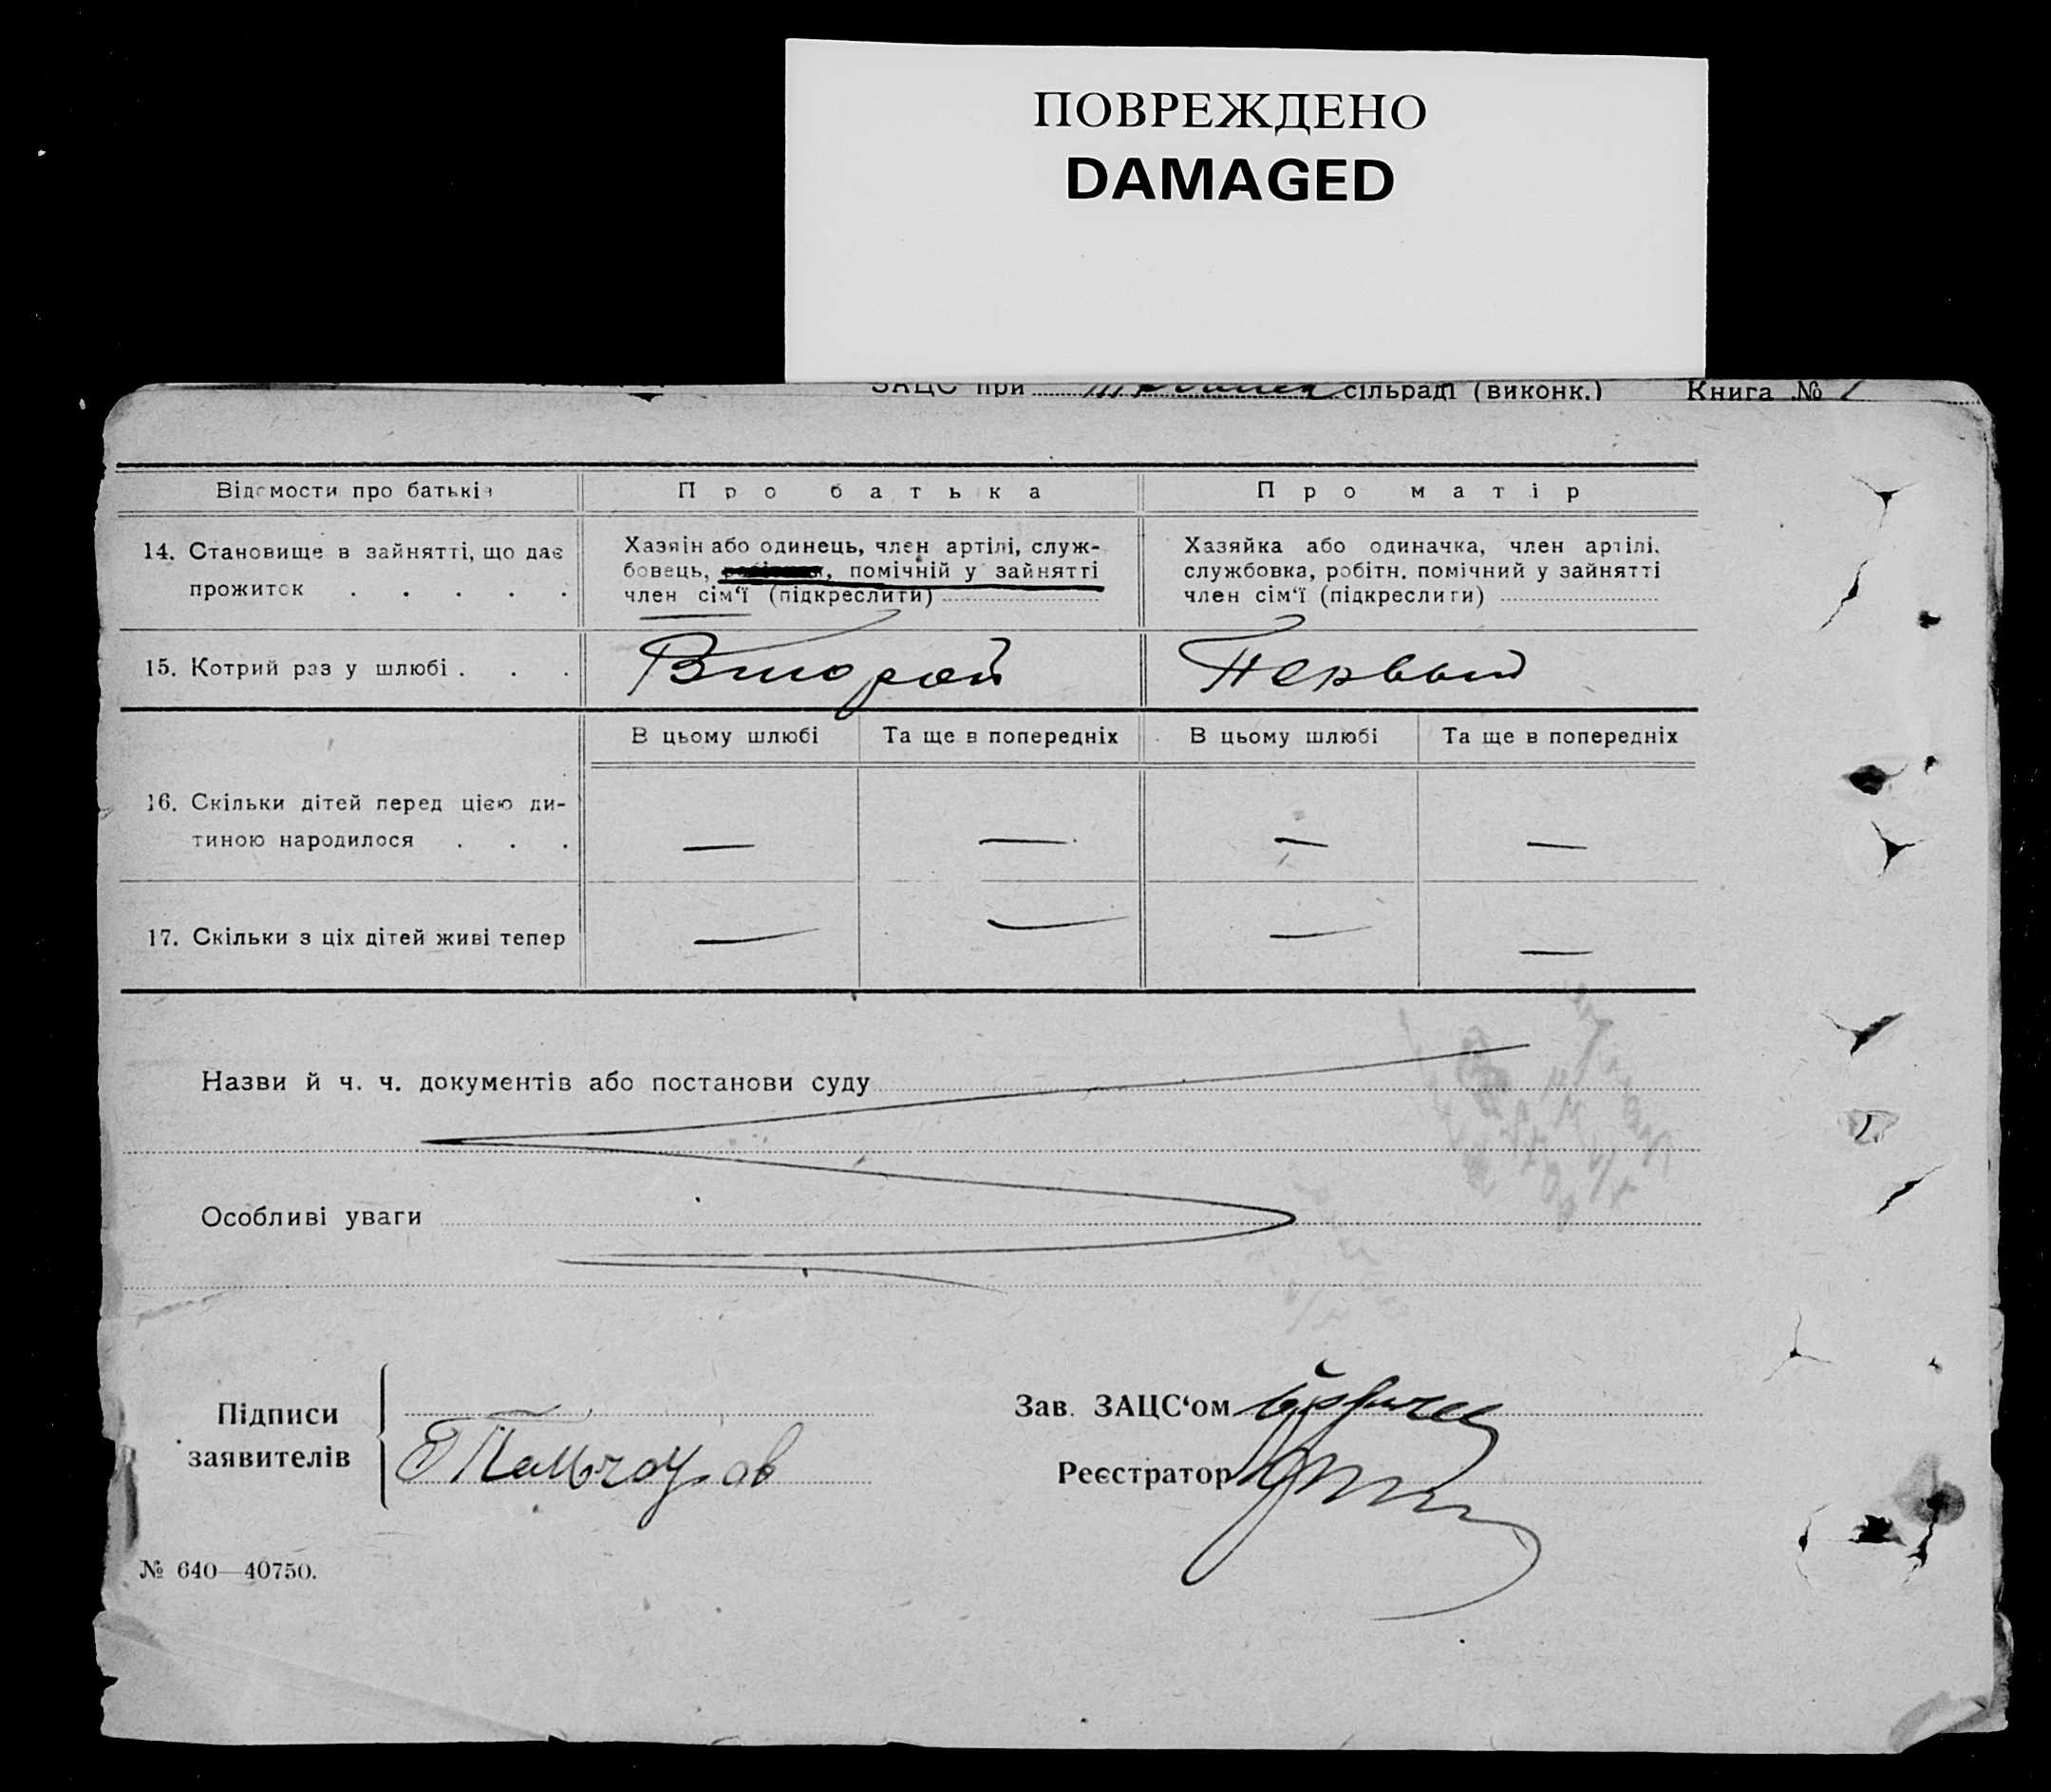 ПОВРЕЖДЕНО
DAMAGED
ЗАЦС при сільраді (виконк.) Книга №
Відомости про батьків Про батька Про матір
14. Становище в зайнятті, що дає прожиток . . . . .
Хазяїн або одинець, член артілі, служ-
бовець, помічній у зайнятті
член сім‘ї (підкреслити)
Хазяйка або одиначка, член артілі,
службовка, робітн. помічний у зайнятті
член сім‘ї (підкреслити)
15. Котрий раз у шлюбі . . . Второй Первый
В цьому шлюбі Та ще в попередніх В цьому шлюбі Та ще в попередніх
16. Скільки дітей перед цією ди-
тиною народилося . . . — — — —
17. Скільки з ціх дітей живі тепер — — — —
Назви й ч. ч. документів або постанови суду
Особливі уваги
Підписи
заявителів
Зав. ЗАЦС‘ом
Реєстратор
№ 640—40750.